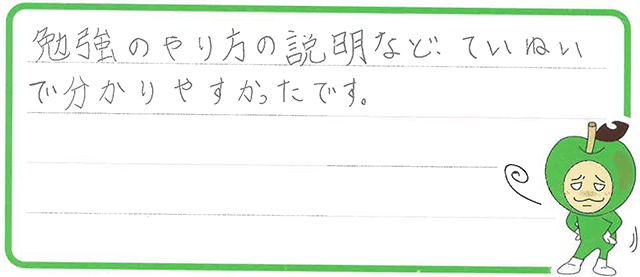 勉強のやり方の説明など、ていねい
で分かりやすかったです。